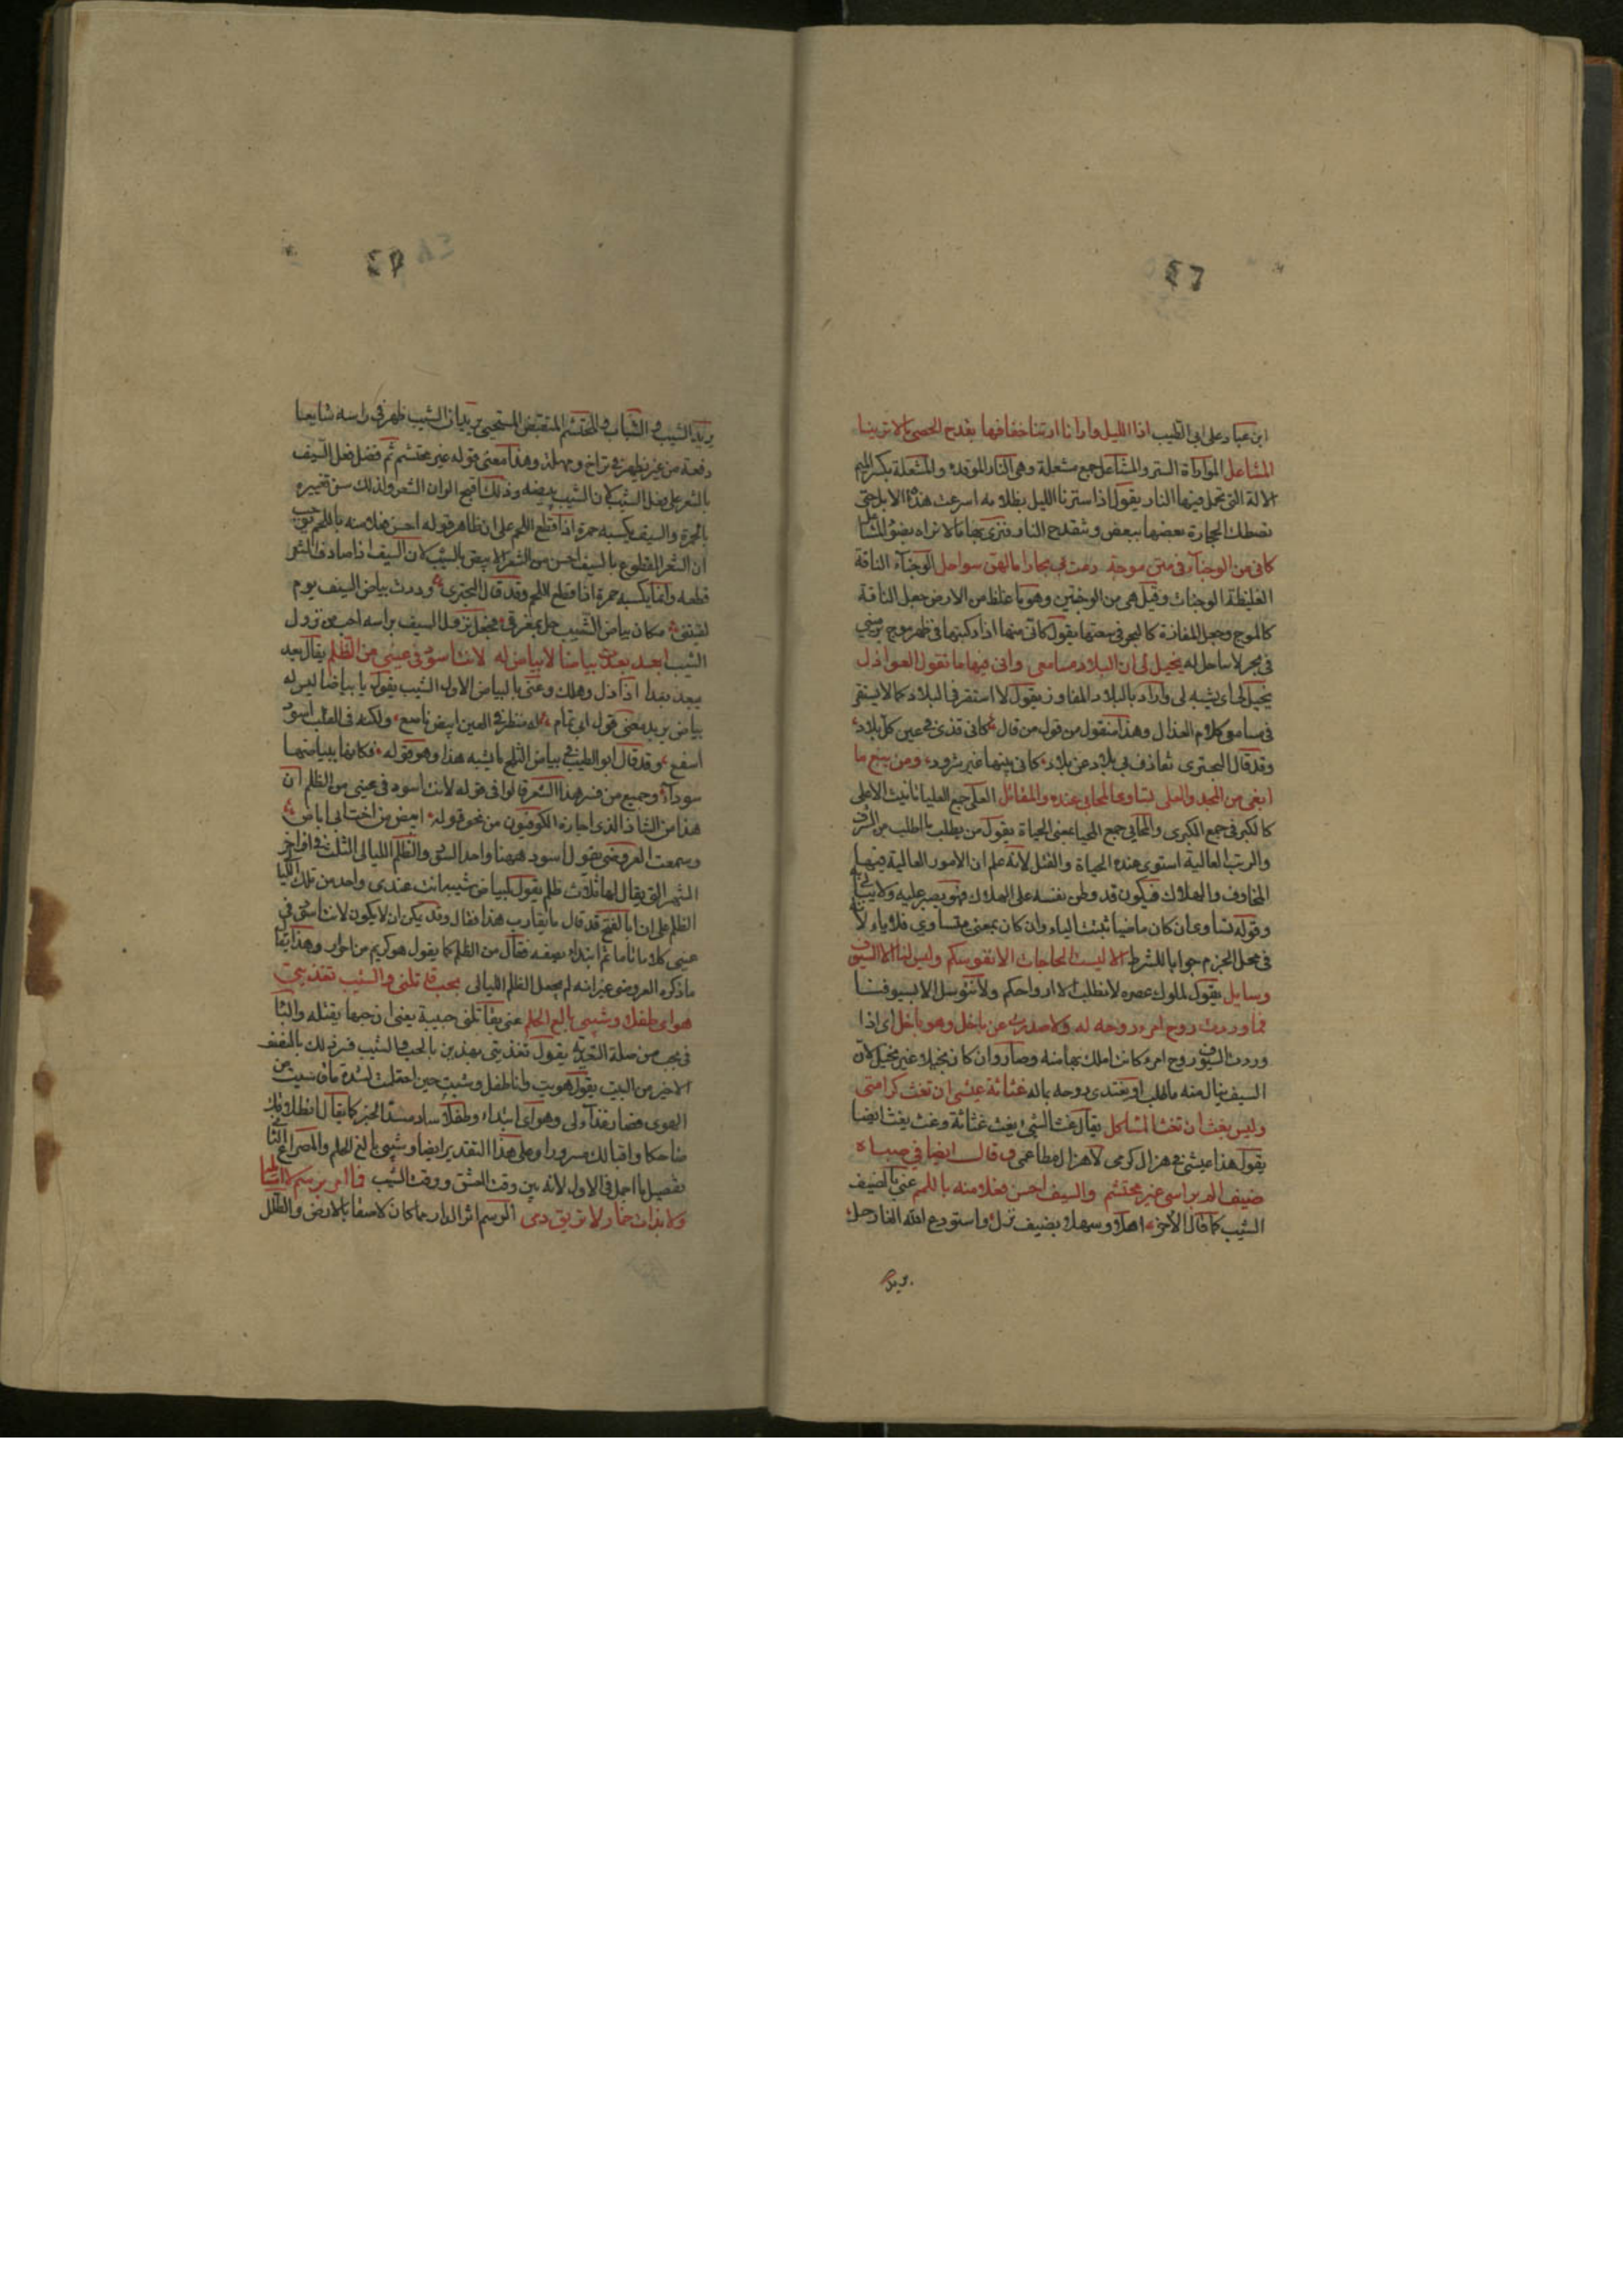 ٤٦
ابن عباد على ابي الطيب اذا الليل وارانا ارتنا خفافها بقدح الحصى ما لا ترينا
المشاعل المواراة الستر والمشاعل جمع مشعلة وهي النار الموقدة والمشعلة بكسر الميم
الالة التي تحمل فيها النار يقول اذا سترنا الليل بظلامه اسرعت هذه الابل حتى
تصطك الحجارة بعضها ببعض وتنقدح النار فنرى بها ما لا نراه بضوء المشاعل
كاني من الوجنآء في متن موجة رمت بي بحارا ما لهن سواحل الوجنآء الناقة
الغليظة الوجنات وقيل هي من الوجين وهو ما غلظ من الارض جعل الناقة
كالموج وجعل المفازة كالبحر في سعتها يقول كاني منها اذا ركبتها في ظهر موج يرمي بي
في بحر لا ساحل له يخيل لي ان البلاد مسامعي واني فيها ما تقول العواذل
يخيل لي اي يشبه لي واراد بالبلاد المفاوز يقول لا استقر في البلاد كما لا يستقر
في مسامعي كلام العذال وهذا منقول من قول من قال كاني قذى في عين كل بلاد
وقد قال البحتري تقاذف بي بلاد عن بلاد كاني بينها عير شرود ومن يبغ ما
ابغي من المجد والعلى تساوى المحايي عنده والمقاتل العلى جمع العليا تانيث الاعلى
كالكبر في جمع الكبرى والمحايي جمع المحيا بمعنى الحياة يقول من يطلب ما اطلب من الشرف
والرتب العالية استوى عنده الحياة والقتل لانه علم ان الامور العالية فيها
المخاوف والهلاك فيكون قد وطن نفسه على الهلاك فهو يصبر عليه ولا يبالي
وقوله تساوى ان كان ماضيا ثبتت الياء وان كان بمعنى تتساوى فلا ياء لانه
في محل الجزم جوابا للشرط الا ليست الحاجات الا نفوسكم وليس لنا الا السيوف
وسايل يقول لملوك عصره لا نطلب الا ارواحكم ولا نتوسل الا بسيوفنا
فما وردت روح امرء روحه له ولا صدرت عن باخل وهو باخل اي اذا
وردت السيوف روح امرء كانت املك بها منه وصار وان كان بخيلا غير بخيل لان
السيف ينال منه ما طلب او يفتدي روحه بماله غثاثة عيشي ان تغث كرامتي
وليس بغث ان تغث الماكل يقال غث الشيء يغث غثاثة وغث يغث ايضا
يقول هذا عيشي في هزال كرمي لا هزال مطاعمي وقال ايضا في صباه
ضيف الم براسي غير محتشم والسيف احسن فعلا منه باللمم عني بالضيف
الشيب كما قال الآخر اهلا وسهلا بضيف نزل واستودع الله الفا رحل
يريد
٤٧
يريد الشيب والشباب والمحتشم المنقبض المستحيي يريد ان الشيب ظهر في راسه شايعا
دفعة من غير ان يظهر في تراخ ومهلة وهذا معنى قوله غير محتشم ثم فضل فعل السيف
بالشعر على فعل الشيب لان الشيب يبيضه وذلك اقبح الوان الشعر ولذلك سن تغييره
بالحمرة والسيف يكسبه حمرة اذا قطع اللحم على ان ظاهر قوله احسن فعلا منه باللمم يوجب
ان الشعر المقطوع بالسيف احسن من الشعر الابيض بالشيب لان السيف اذا صادف الشعر
قطعه وانما يكسبه حمرة اذا قطع اللحم وقد قال البحتري وددت بياض السيف يوم
لقيتني مكان بياض الشيب حل بمفرقي فجعل نزول السيف براسه احب من نزول
الشيب ابعد بعدت بياضا لا بياض له لانت اسود في عيني من الظلم يقال بعد
يبعد بعدا اذا ذل وهلك وعنى بالبياض الاول الشيب يقول يا بياضا ليس له
بياض يريد معنى قول ابي تمام له منظر في العين ابيض ناصع ولكنه في القلب اسود
اسفع وقد قال ابو الطيب في بياض الثلج ما يشبه هذا وهو قوله فكانها ببياضها
سودآء وجميع من فسر هذا الشعر قالوا في قوله لانت اسود في عيني من الظلم ان
هذا من الشاذ الذي اجازه الكوفيون من نحو قوله ابيض من اخت ابي اباض
وسمعت العروضي يقول اسود ههنا واحد السود والظلم الليالي الثلث في اواخر
الشهر التي يقال لها ثلاث ظلم يقول لبياض شيبه انت عندي واحد من تلك الليالي
الظلم على ان ابا الفتح قد قال ما يقارب هذا فقال وقد يمكن ان لا يكون لانت اسود في
عيني كلاما تاما ثم ابتداء بصفه فقال من الظلم كما يقول هو كريم من احرار وهذا يقارب
ما ذكره العروضي غير انه لم يجعل الظلم الليالي بحب قاتلتي والشيب تغذيتي
هواي طفلا وشيبي بالغ الحلم عنى بقاتلتي حبيبة يعني ان حبها يقتله والباء
في بحب من صلة التغذية يقول تغذيتي بهذين بالحب والشيب فسر ذلك بالنصف
الاخير من البيت يقول هويت وانا طفل وشبت حين احتلمت لشدة ما قاسيت من
الهوى فصار غذآء لي وهواي ابتداء وطفلا ساد مسد الخبر كما يقال انطلاقك
ضاحكا واقبالك مسرورا وعلى هذا التقدير ايضا وشيبي بالغ الحلم والمصراع الثاني
تفصيل ما اجمل في الاول لانه بين وقت العشق ووقت الشيب فما امر برسم لا اسايله
ولا بذات خمار لا تريق دمي الرسم اثر الدار مما كان لاصقا بالارض والطلل